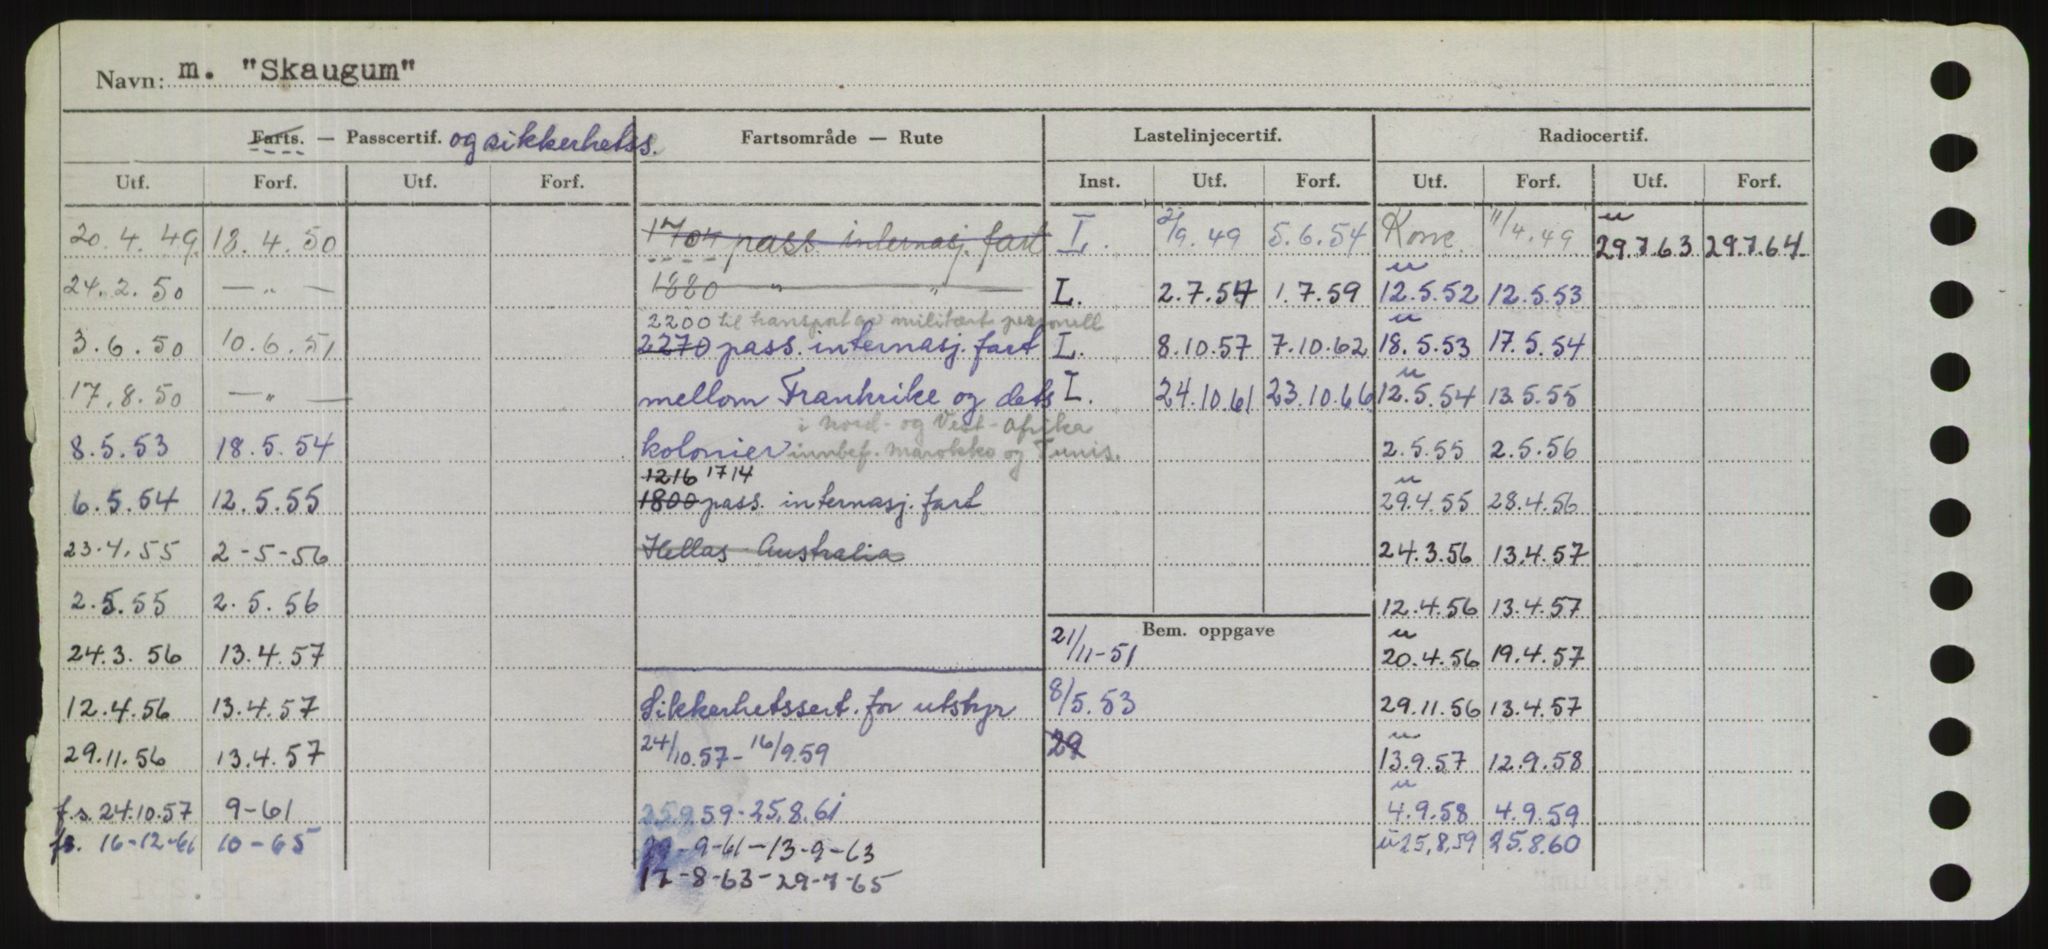 Navn: m. "Skaugum"
Farts. — Passcertif. og sikkerhetss. Fartsområde — Rute Lastelinjecertif. Radiocertif.
Utf. Forf. Utf. Forf. Inst. Utf. Forf. Utf. Forf. Utf. Forf.
20.4.49 18.4.50 1704 pass. internasj. fart I. 2/9.49 5.6.54 11/4.49 u 29.7.63 29.7.64
24.2.50 — " — 1880 " " L. 2.7.54 1.7.59 u 12.5.52 12.5.53
2200 til transport av militært personell
3.6.50 10.6.51 2270 pass. internasj. fart L. 8.10.57 7.10.62 u 18.5.53 17.5.54
17.8.50 — " — mellom Frankrike og dets L. 24.10.61 23.10.66 u 12.5.54 13.5.55
i Nord- og Vest-Afrika
8.5.53 18.5.54 kolonier innbef. Marokko og Tunis. 2.5.55 2.5.56
1216 1714
6.5.54 12.5.55 1800 pass. internasj. fart u 29.4.55 28.4.56
23.4.55 2-5-56 Hellas - Australia 24.3.56 13.4.57
2.5.55 2.5.56 12.4.56 13.4.57
Bem. oppgave
24.3.56 13.4.57 21/11-51 u 20.4.56 19.4.57
12.4.56 13.4.57 Sikkerhetssert. for utstyr 8/5.53 29.11.56 13.4.57
29.11.56 13.4.57 24/10.57 - 16/9.59 29 u 13.9.57 12.9.58
f.s. 24.10.57 9-61 25.9.59-25.8.61 u 4.9.58 4.9.59
fs. 16-12-61 10-65 -9-61-13-9-63 u 25.8.59 25.8.60
17-8-63-29-7-65